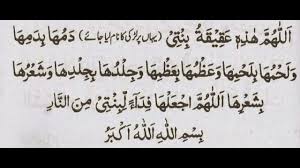 اَللّٰهُمَّ هٰذِهٖ عَقِيْقَةُ بِنْتِىْ (یہاں پر لڑکی کا نام لیا جائے) دَمُهَا بِدَمِهَا
وَلَحْمُهَا بِلَحْمِهَا وَعَظْمُهَا بِعَظْمِهَا وَجِلْدُهَا بِجِلْدِهَا وَشَعْرُهَا
بِشَعْرِهَا اَللّٰهُمَّ اجْعَلْهَا فِدَآءً لِّبِنْتِىْ مِنَ النَّارِ
بِسْمِ اللّٰهِ اَللّٰهُ اَكْبَرُ